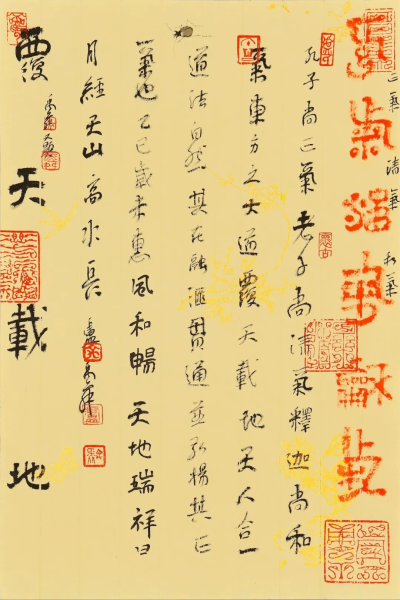 正氣清氣和氣
正氣 清氣 和氣
孔子尚正氣老子尚清氣釋迦尚和
氣東方之大道覆天載地天人合一
道法自然其在融滙貫通並弘揚其正
一氣也乙巳歲末惠風和暢天地瑞祥日
月經天山高水長
覆天載地